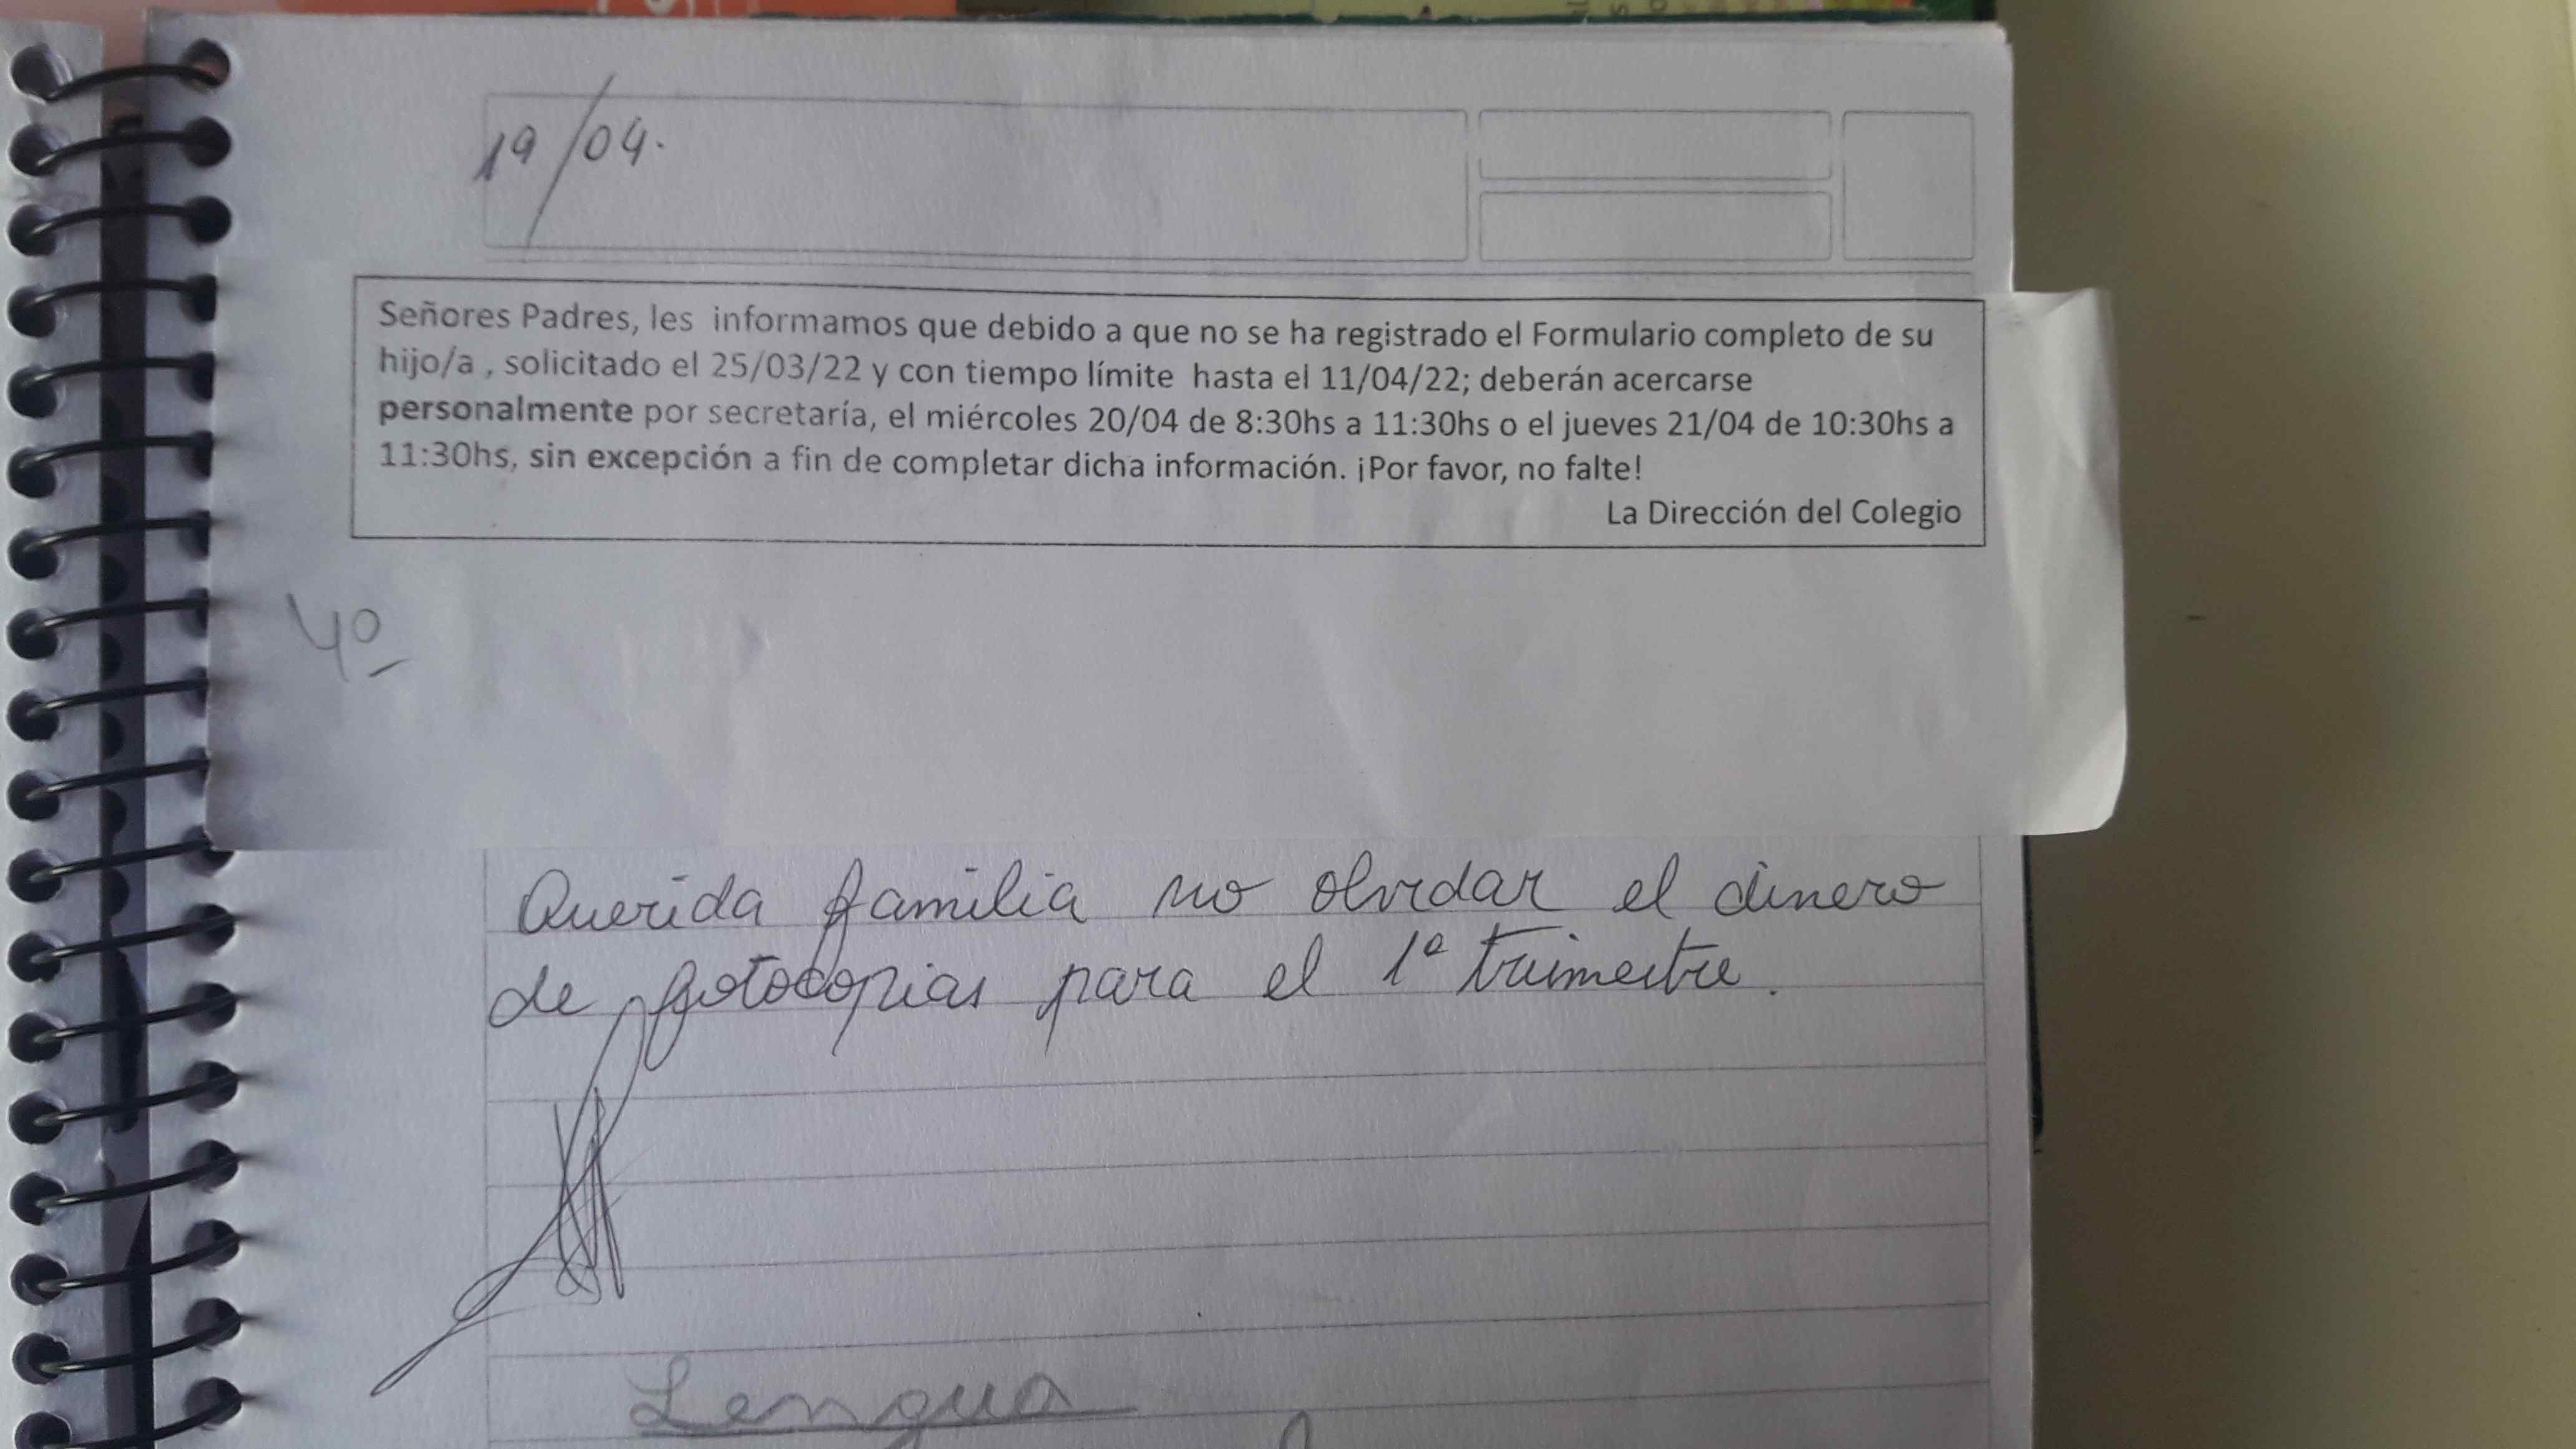 19/04.
Señores Padres, les informamos que debido a que no se ha registrado el Formulario completo de su
hijo/a , solicitado el 25/03/22 y con tiempo límite hasta el 11/04/22; deberán acercarse
personalmente por secretaría, el miércoles 20/04 de 8:30hs a 11:30hs o el jueves 21/04 de 10:30hs a
11:30hs, sin excepción a fin de completar dicha información. ¡Por favor, no falte!
La Dirección del Colegio
4º
Querida familia no olvidar el dinero
de fotocopias para el 1º trimestre.
Lengua